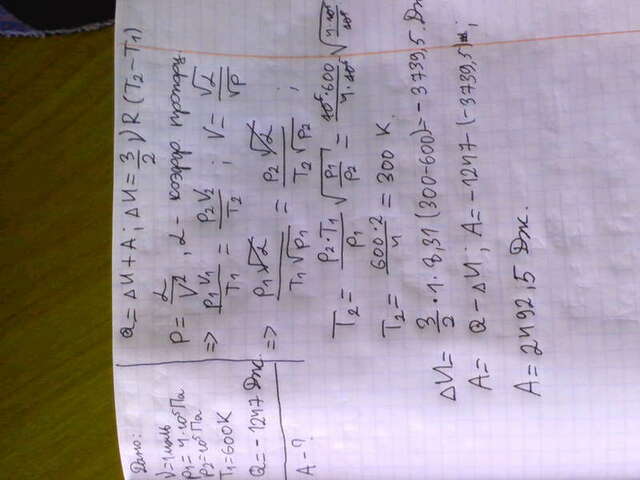 Дано:
ν=1моль
p₁=4·10⁵Па
p₂=10⁵Па
T₁=600K
Q=-1247 Дж.
A-?
Q=ΔU+A; ΔU=3/2 νR(T₂-T₁)
p=α/V², α- коэффр пропорц.
=> p₁V₁/T₁ = p₂V₂/T₂ ; V=√α/√p
=> p₁√α/T₁√p₁ = p₂√α/T₂√p₂ ;
T₂= p₂·T₁/p₁ √p₁/p₂ = 10⁵·600/4·10⁵ √4·10⁵/10⁵
T₂= 600·2/4 =300 K.
ΔU= 3/2 ·1·8,31(300-600)=-3739,5 Дж
A= Q-ΔU; A=-1247-(-3739,5);
A=2492,5 Дж.